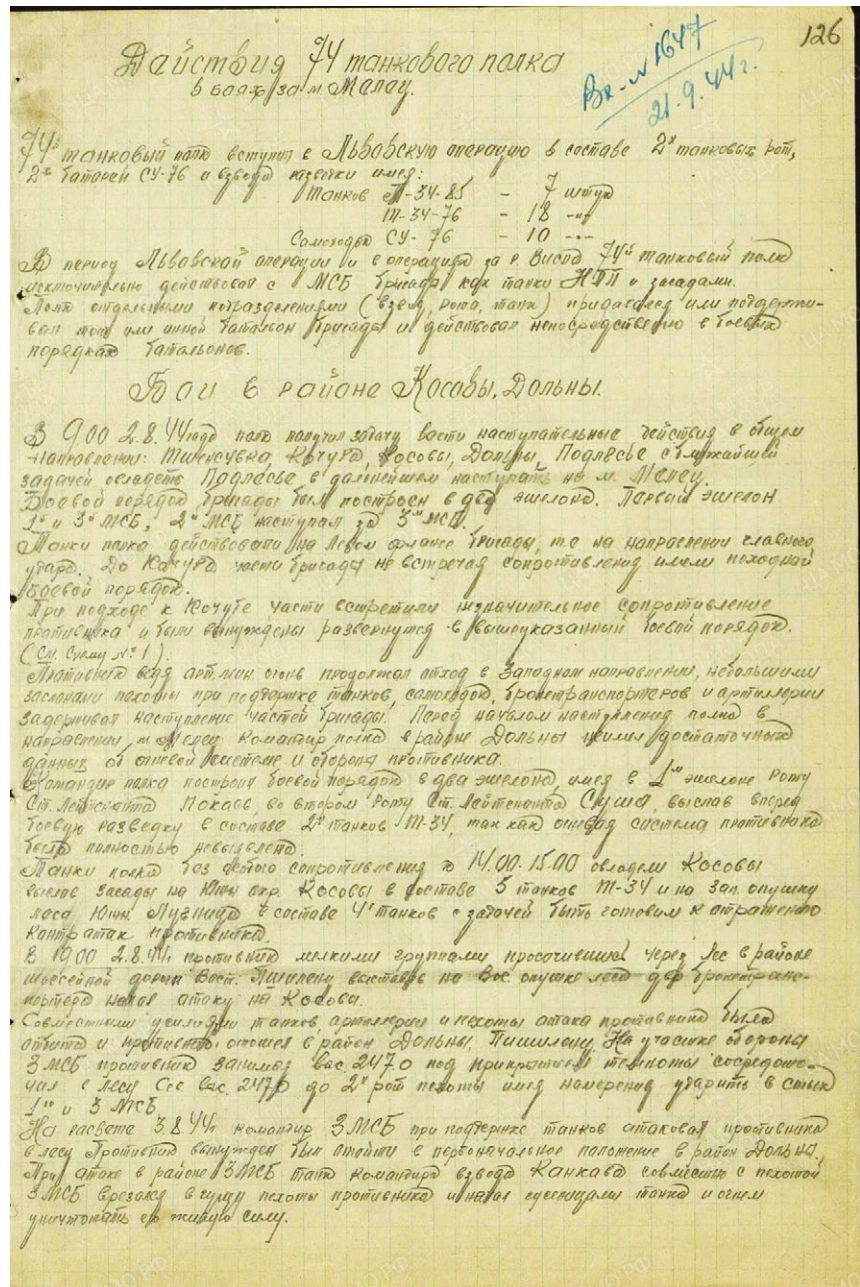 126
Действия 74 танкового полка
в боях за м Мелец.
Вх-№1647
21.9.44г.
74й танковый полк вступил в Львовскую операцию в составе 2х танковых рот,
2х батарей СУ-76 и взвода разведки имея:
Танков Т-34-85 - 7 штук
Т-34-76 - 18 -"-
Самоходок СУ-76 - 10 -"-
В период Львовской операции и в операции за р. Висла 74й танковый полк
исключительно действовал с МСБ бригады как танки НПП и засадами.
Полк отдельными подразделениями (взвод, рота, танк) придавался или поддержи-
вал тот или иной батальон бригады и действовал непосредственно в боевых
порядках батальонов.
Бои в районе Косовы, Дольны.
В 9.00 2.8.44 года полк получил задачу вести наступательные действия в общем
направлении: Кочуба, Косовы, Дольны, Подлесье с ближайшей
задачей овладеть Подлесье в дальнейшем наступать на м. Мелец.
Боевой порядок бригады был построен в два эшелона. Первый эшелон
1й и 3й МСБ, 2й МСБ наступал за 3й МСБ.
Танки полка действовали на левом фланге бригады, т.е на направлении главного
удара. До Кочуба части бригады не встречая сопротивления имели походной
боевой порядок.
При подходе к Кочубе части встретили незначительное сопротивление
противника и были вынуждены развернутся в вышеуказанный боевой порядок.
(См схему №1).
Противник ведя арт.мин огонь продолжал отход в Западном направлении, небольшими
заслонами пехоты при поддержке танков, самоходок, бронетранспортеров и артиллерии
задерживал наступление частей бригады. Перед началом наступления полка в
направлении, м Мелец командир полка в районе Дольны неимел достаточных
данных об огневой системе и обороне противника.
Командир полка построил боевой порядок в два эшелона, имея в 1м эшелоне роту
Ст. Лейтенанта во втором роту Ст. Лейтенанта выслав вперед
боевую разведку в составе 2х танков Т-34, так как огневая система противника
была полностью невыявлена.
Танки полка без особого сопротивления к 14.00-15.00 овладели Косовы
выслав засады на Южн окр. Косовы в составе 5 танков Т-34 и на Зап. опушку
леса Южн. в составе 4х танков с задачей быть готовым к отражению
контратак противника.
В 19.00 2.8.44г противник мелкими группами просочившись через лес в районе
шоссейной дороги Вост. выставив на Вос. опушке леса два бронетранс-
портера начал атаку на Косовы.
Совместными усилиями танков, артиллерии и пехоты атака противника была
отбита и противник отошел в район Дольны, На участке обороны
3 МСБ противник занимая выс. 247,0 под прикрытием темноты сосредото-
чил в лесу Сев выс. 247,0 до 2х рот пехоты имея намерение ударить в стык
1й и 3 МСБ
На рассвете 3.8.44г командир 3 МСБ при поддержке танков атаковал противника
в лесу Противник вынужден был отойти в первоначальное положение в район Дольна.
При атаке в районе 3 МСБ танк командира взвода Канкава совместно с пехотой
3 МСБ врезался в гущу пехоты противника и начал гусеницами танка и огнем
уничтожать его живую силу.